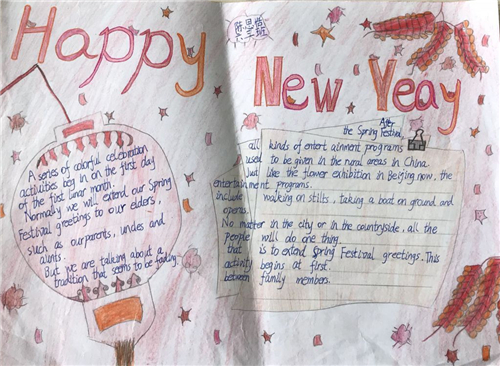 Happy
陈思岚
六三班
New Yeay
A series of colorful celebration
activities begin on the first day
of the first lunar month.
Normally we will extend our Spring
Festival greetings to our elders,
such as ourparents, uncles and
aunts.
But we are talking about a
tradition that seems to be fading.
After
the Spring Festival,
all kinds of entert ainment programs
used to be given in the rural areas in China
but like the flower exhibition in Beijing now, the
entertainment programs.
include walking on stilts, taking a boat on ground and
operas.
No matter in the city or in the countryside, all the
People will do one thing.
that is to extend Spring Festival greetings. This
activity begins at first.
between family members.